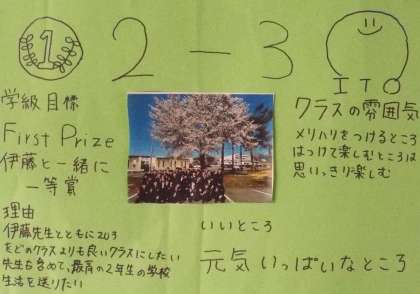 1
2-3
ITO
学級目標
First Prize
伊藤と一緒に
一等賞
理由
伊藤先生とともに203
をどのクラスよりも良いクラスにしたい
先生も含めて、最高の2年生の学校
生活を送りたい
いいところ
元気いっぱいなところ
クラスの雰囲気
メリハリをつけるところ
はつけて楽しむところは
思いっきり楽しむ